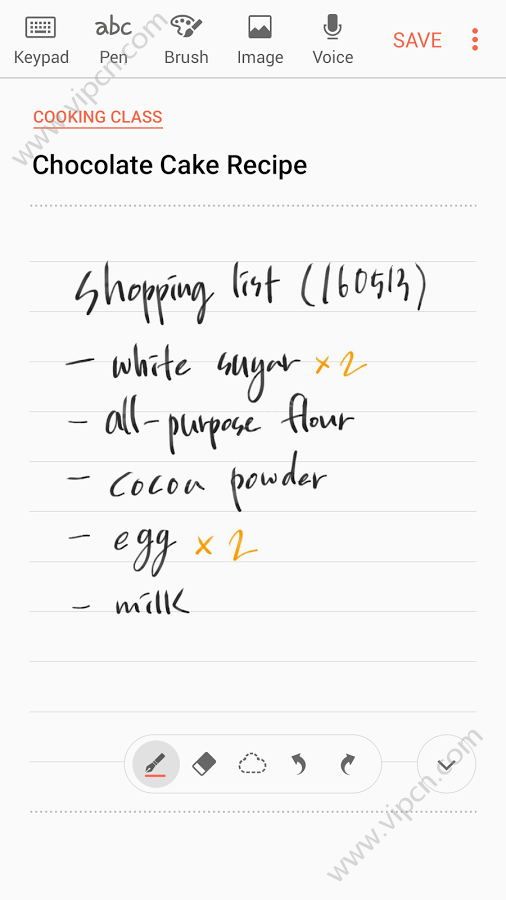 Keypad
abc
Pen
Brush
Image
Voice
SAVE
COOKING CLASS
Chocolate Cake Recipe
shopping list (160513)
- white sugar x2
- all-purpose flour
- cocoa powder
- egg x 2
- milk
www.vipcn.com
www.vipcn.com